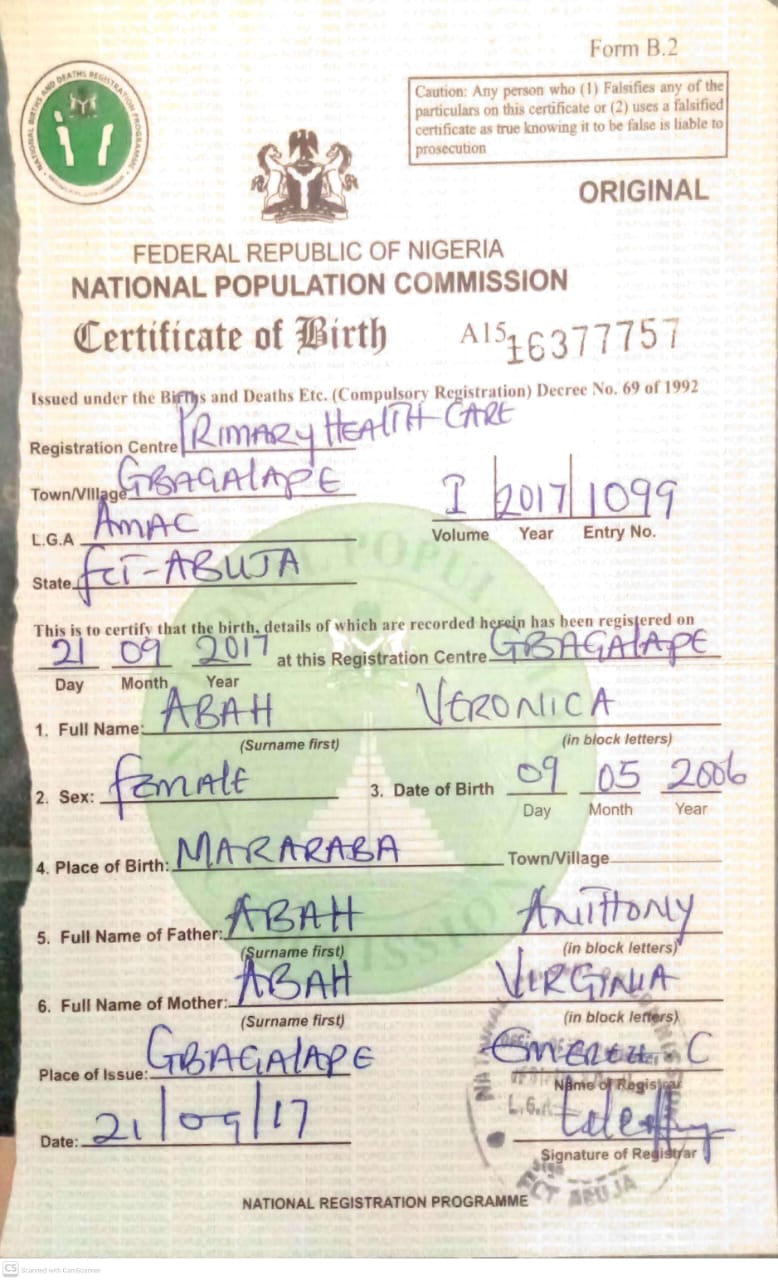 Form B.2
NATIONAL BIRTHS AND DEATHS REGISTRATION PROGRAMME
Caution: Any person who (1) Falsifies any of the
particulars on this certificate or (2) uses a falsified
certificate as true knowing it to be false is liable to
prosecution
ORIGINAL
FEDERAL REPUBLIC OF NIGERIA
NATIONAL POPULATION COMMISSION
Certificate of Birth A15 16377757
Issued under the Births and Deaths Etc. (Compulsory Registration) Decree No. 69 of 1992
Registration Centre PRIMARY HEALTH CARE
Town/Village GBAGALAPE
I 2017 1099
Volume Year Entry No.
L.G.A AMAC
State FCT-ABUJA
This is to certify that the birth, details of which are recorded herein has been registered on
21 09 2017 at this Registration Centre GBAGALAPE
Day Month Year
1. Full Name: ABAH VERONICA
(Surname first) (in block letters)
2. Sex: female 3. Date of Birth 09 05 2006
Day Month Year
4. Place of Birth: MARARABA Town/Village
5. Full Name of Father: ABAH ANTHONY
(Surname first) (in block letters)
6. Full Name of Mother: ABAH VIRGINIA
(Surname first) (in block letters)
Place of Issue: GBAGALAPE C
Name of Registrar
L.G.A
Date: 21/09/17
Signature of Registrar
FCT ABUJA
NATIONAL REGISTRATION PROGRAMME
CS Scanned with CamScanner